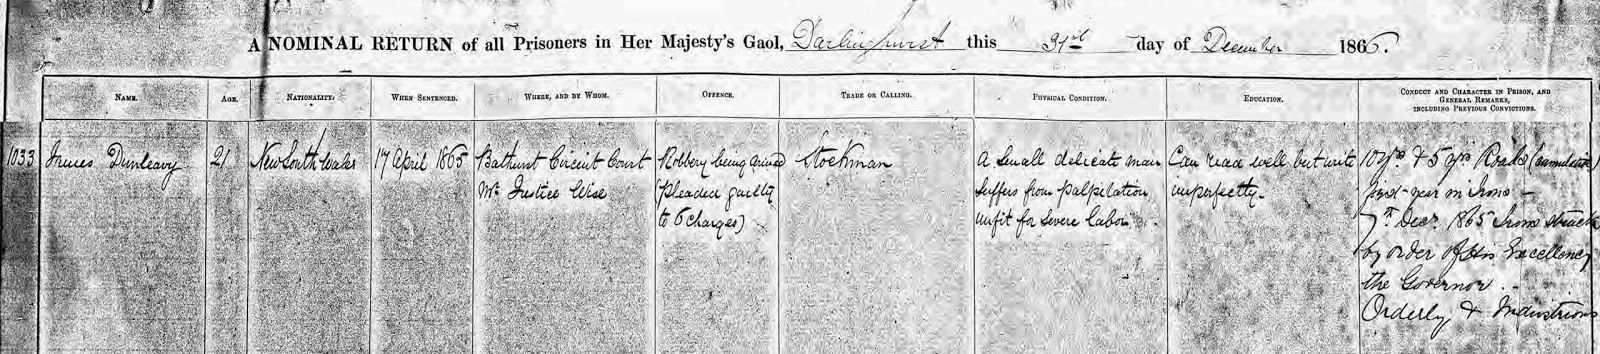 A NOMINAL RETURN of all Prisoners in Her Majesty's Gaol, Darlinghurst this 31st day of December 1866.
NAME. AGE. NATIONALITY. WHEN SENTENCED. WHERE, AND BY WHOM. OFFENCE. TRADE OR CALLING. PHYSICAL CONDITION. EDUCATION. CONDUCT AND CHARACTER IN PRISON, AND
GENERAL REMARKS,
INCLUDING PREVIOUS CONVICTIONS.
1033 James Dunleavy 21 New South Wales 17 April 1865 Bathurst Circuit Court Robbery being armed Stockman A small delicate man Can read well but write 10 yrs & 5 yrs Roads (cumulative)
Mr Justice Wise (pleaded guilty suffers from palpitation imperfectly. first year in Irons -
to 6 charges) unfit for severe labor. 7th Decr 1865 Irons struck
by order of His Excellency
the Governor. -
Orderly & Industrious